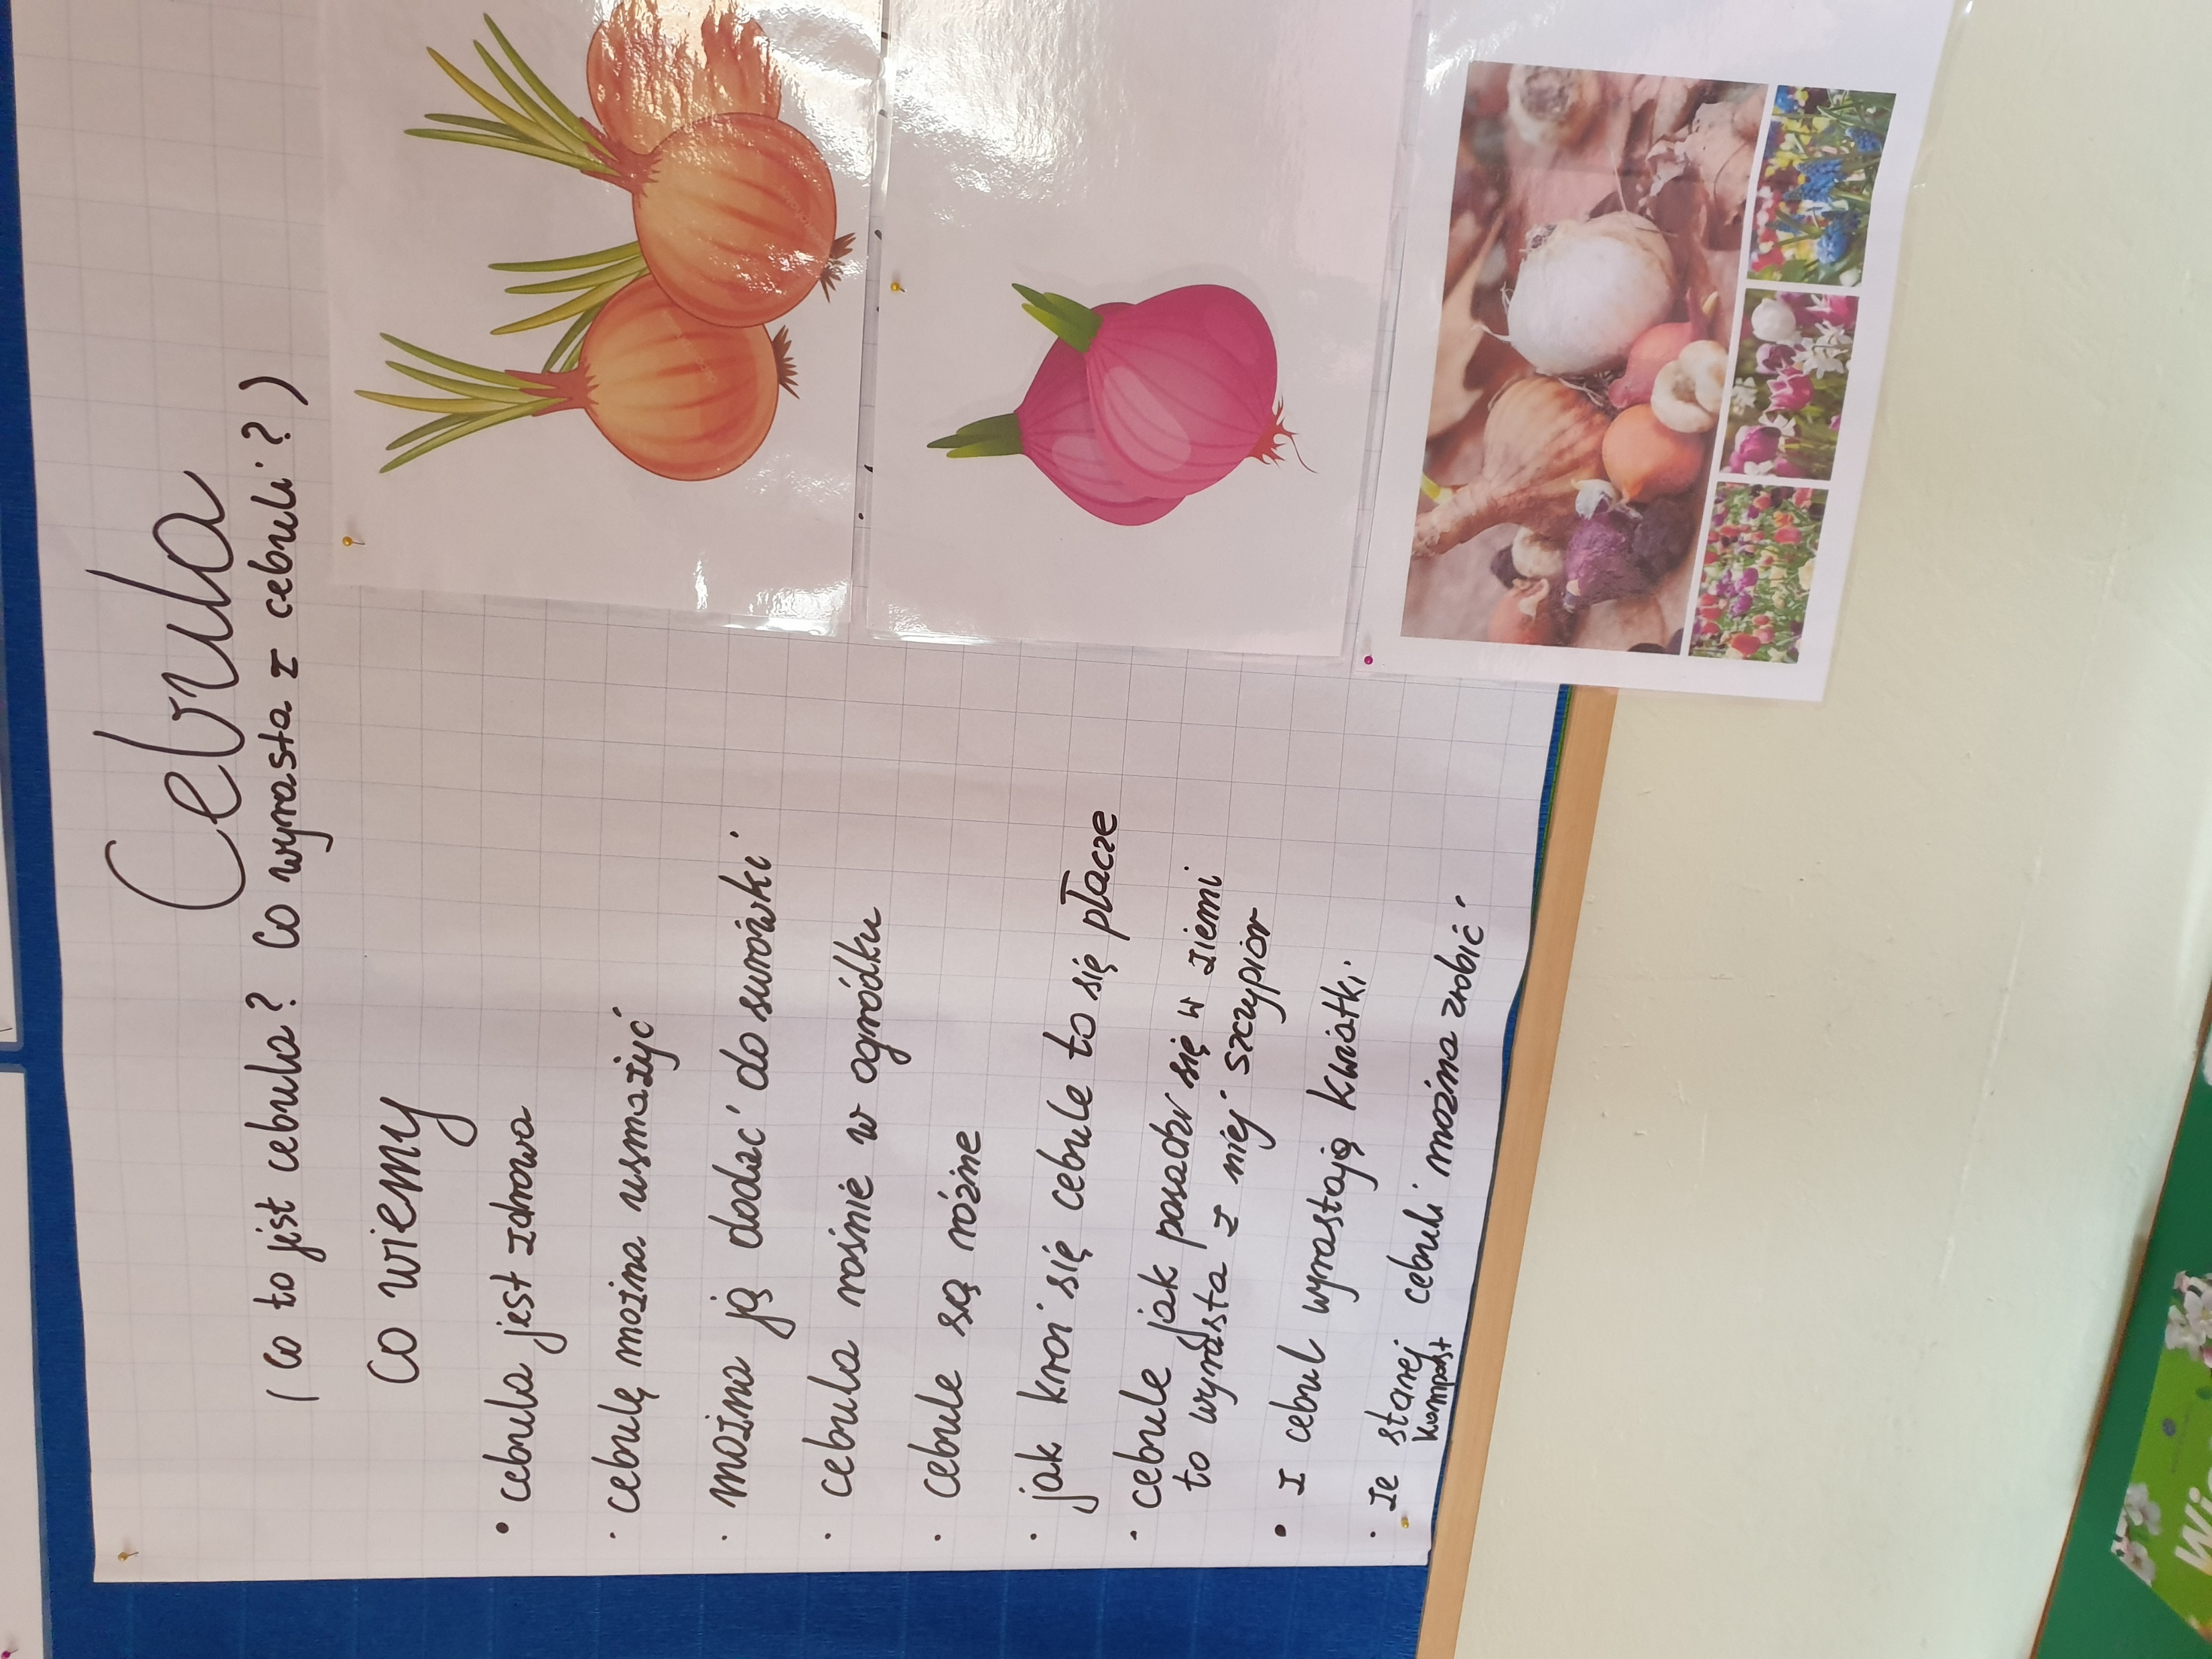 Cebula
(Co to jest cebula? Co wyrasta z cebuli?)
Co wiemy
• cebula jest zdrowa
• cebulę można usmażyć
• można ją dodać do surówki
• cebula rośnie w ogródku
• cebule są różne
• jak kroi się cebule to się płacze
• cebule jak posadzi się w ziemi
to wyrasta z niej szczypior
• z cebul wyrastają kwiatki
• ze starej cebuli można zrobić
kompost